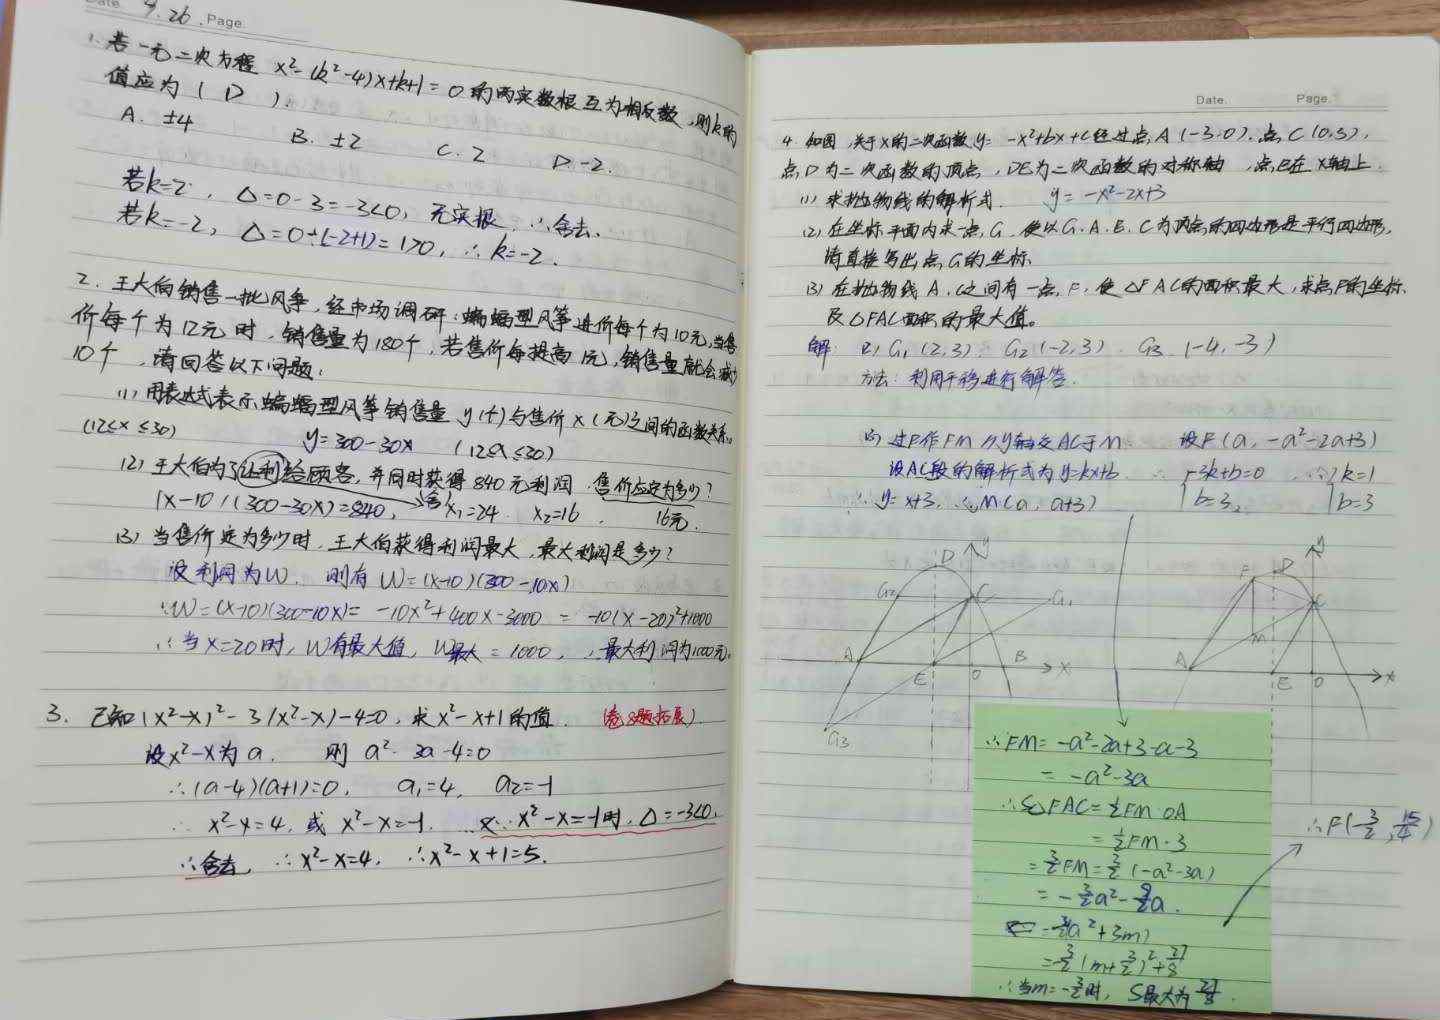 Date. 9.26 .Page.
1.若一元二次方程 x²-(k²-4)x+k+1=0的两实数根互为相反数,则k的
值应为( D )
A. ±4 B. ±2 C. 2 D. -2.
若k=2, Δ=0-3=-3<0, 无实根, ∴舍去.
若k=-2, Δ=0-(-2+1)=1>0, ∴k=-2.
2. 王大伯销售一批风筝,经市场调研:蝙蝠型风筝进价每个为10元,当售
价每个为12元时,销售量为180个,若售价每提高1元,销售量就会减少
10个,请回答以下问题:
(1)用表达式表示蝙蝠型风筝销售量y(个)与售价x(元)之间的函数关系。
(12≤x≤30) y=300-30x (12≤x≤30)
(2)王大伯为了让利给顾客,并同时获得840元利润,售价应定为多少?
(x-10)(300-30x)=840, 舍x₁=24. x₂=16. 16元.
(3)当售价定为多少时,王大伯获得利润最大,最大利润是多少?
设利润为W. 则有W=(x-10)(300-10x)
∴W=(x-10)(300-10x)= -10x²+400x-3000 = -10(x-20)²+1000
∴当x=20时, W有最大值, W最大=1000, ∴最大利润为1000元。
3. 已知(x²-x)²-3(x²-x)-4=0,求x²-x+1的值. (卷8题拓展)
设x²-x为a. 则 a²-3a-4=0
∴(a-4)(a+1)=0, a₁=4, a₂=-1
∴x²-x=4, 或 x²-x=-1. ∵x²-x=-1时,Δ=-3<0,
∴舍去, ∴x²-x=4, ∴x²-x+1=5.
Date. Page.
4. 如图,关于x的二次函数y= -x²+bx+c经过点A(-3,0),点C(0,3),
点D为二次函数的顶点,DE为二次函数的对称轴,点E在x轴上.
(1)求抛物线的解析式. y=-x²-2x+3
(2)在坐标平面内求一点G,使以G、A、E、C为顶点的四边形是平行四边形,
请直接写出点G的坐标.
(3)在抛物线A、C之间有一点F,使△FAC的面积最大,求点F的坐标
及△FAC面积的最大值。
解: (2)G₁(2,3), G₂(-2,3), G₃(-4,-3)
方法:利用平移进行解答.
(3)过F作FM∥y轴交AC于M. 设F(a, -a²-2a+3)
设AC段的解析式为y=kx+b. ∴{-3k+b=0 ∴{k=1
∴y=x+3, ∴M(a, a+3) b=3, b=3
D y
G₂ C G₁
A E O B x
G₃
F D y
C
M
A E O x
∴FM=-a²-2a+3-a-3
= -a²-3a
∴S△FAC=½FM·OA
=½FM·3
=3/2FM=3/2(-a²-3a)
= -3/2a²-9/2a.
-3/2(a²+3m)
=-3/2(m+3/2)²+27/8
∴当m=-3/2时, S最大为27/8.
∴F(-3/2, 15/4)